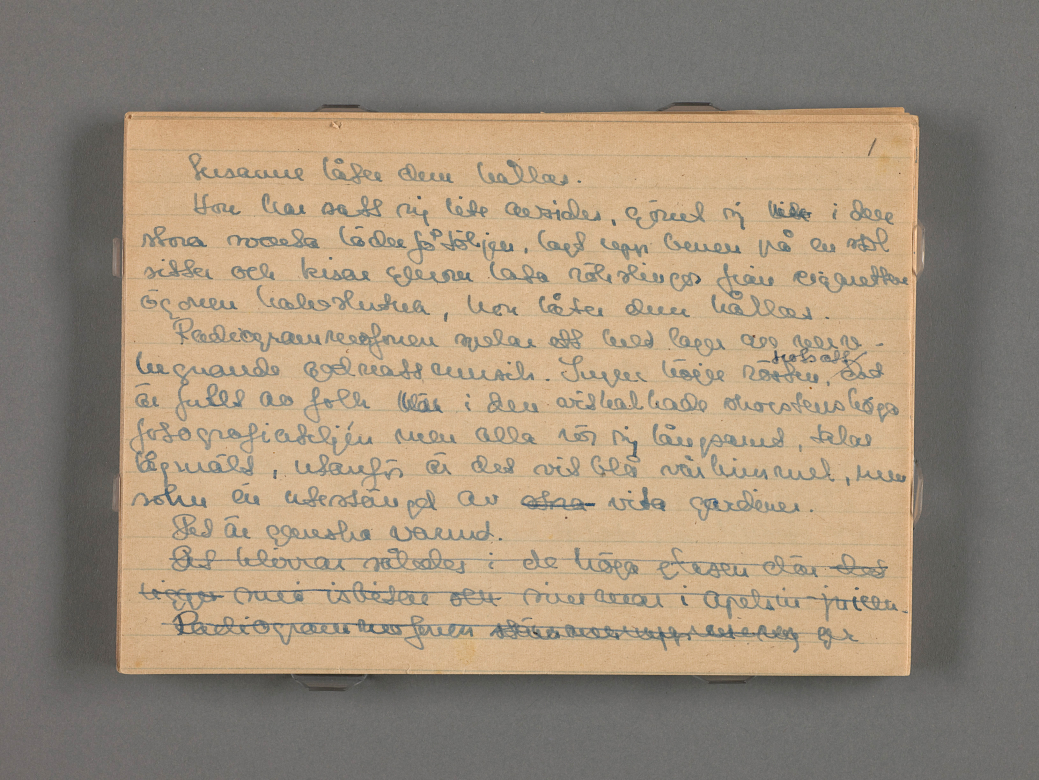 1
Susanne låter dem hållas.
Hon har satt sig lite avsides, gömt sig i den
stora svarta läderfåtöljen, lagt upp benen på en stol
sitter och kisar genom lata rökslingor från cigaretten
ögonen halvslutna, hon låter dem hållas.
Radiogrammofonen spelar ett helt lager av
lugnande musik. Inger höjer rösten,
är fullt av folk här i den vitkalkade
men alla rör sig långsamt, talar
lågmält, utanför är det vitblå vårhimmel, men
solen är utestängd av vita gardiner.
Det är ganska varmt.
Det klirrar således i de höga glasen där det
ligger små isbitar och simmar i apelsin-juicen.
Radiogrammofonen